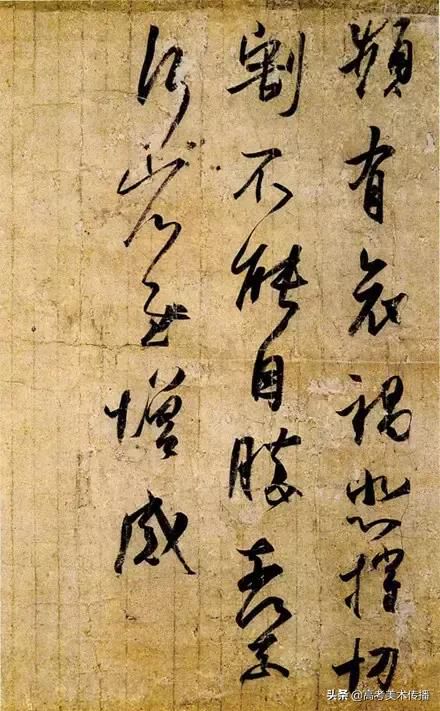 頻有哀禍悲摧切
割不能自勝奈何奈
何省慰增感
头条 @高考美术传播